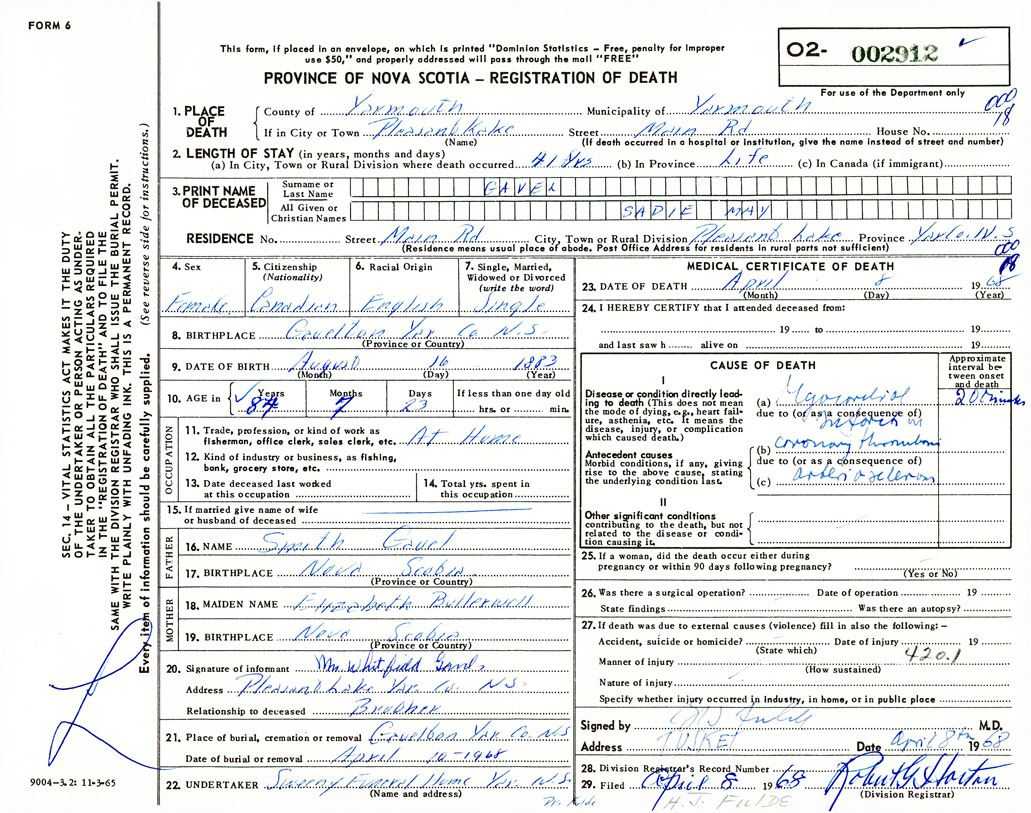 FORM 6
This form, if placed in an envelope, on which is printed "Dominion Statistics – Free, penalty for improper
use $50," and properly addressed will pass through the mail "FREE"
O2- 002912
For use of the Department only
PROVINCE OF NOVA SCOTIA – REGISTRATION OF DEATH
000
18
1. PLACE OF DEATH
County of Yarmouth Municipality of Yarmouth
If in City or Town Pleasant Lake Street Main Rd House No.
(Name) (If death occurred in a hospital or institution, give the name instead of street and number)
2. LENGTH OF STAY (in years, months and days)
(a) In City, Town or Rural Division where death occurred 41 Yrs (b) In Province Life (c) In Canada (if immigrant)
3. PRINT NAME OF DECEASED
Surname or Last Name GAVEL
All Given or Christian Names SADIE MAY
RESIDENCE No. Street Main Rd City, Town or Rural Division Pleasant Lake Province Yar Co. N.S
(Residence means usual place of abode. Post Office Address for residents in rural parts not sufficient)
000
18
4. Sex Female
5. Citizenship (Nationality) Canadian
6. Racial Origin English
7. Single, Married, Widowed or Divorced (write the word) Single
8. BIRTHPLACE Gavelton Yar. Co N.S.
(Province or Country)
9. DATE OF BIRTH August 16 1883
(Month) (Day) (Year)
10. AGE in Years 84 Months 7 Days 23 If less than one day old hrs. or min.
OCCUPATION
11. Trade, profession, or kind of work as fisherman, office clerk, sales clerk, etc. At Home
12. Kind of industry or business, as fishing, bank, grocery store, etc.
13. Date deceased last worked at this occupation
14. Total yrs. spent in this occupation
15. If married give name of wife or husband of deceased
FATHER
16. NAME Smith Gavel
17. BIRTHPLACE Nova Scotia
(Province or Country)
MOTHER
18. MAIDEN NAME Elizabeth Butterwell
19. BIRTHPLACE Nova Scotia
(Province or Country)
20. Signature of informant Mr. Whitfield Gavel
Address Pleasant Lake Yar. Co. N.S.
Relationship to deceased Brother
21. Place of burial, cremation or removal Gavelton Yar Co. N.S
Date of burial or removal April 10-1968
22. UNDERTAKER Sweeny Funeral Home Yar. N.S.
(Name and address)
MEDICAL CERTIFICATE OF DEATH
23. DATE OF DEATH April 8 1968
(Month) (Day) (Year)
24. I HEREBY CERTIFY that I attended deceased from:
19 to 19
and last saw h alive on 19
CAUSE OF DEATH
Approximate interval between onset and death
I
Disease or condition directly leading to death (This does not mean the mode of dying, e.g., heart failure, asthenia, etc. It means the disease, injury, or complication which caused death.)
(a) Myocardial 20 minutes
due to (or as a consequence of)
infarction
Antecedent causes
Morbid conditions, if any, giving rise to the above cause, stating the underlying condition last.
(b) coronary thrombosis
due to (or as a consequence of)
(c) arteriosclerosis
II
Other significant conditions contributing to the death, but not related to the disease or condition causing it.
25. If a woman, did the death occur either during pregnancy or within 90 days following pregnancy?
(Yes or No)
26. Was there a surgical operation? Date of operation 19
State findings Was there an autopsy?
27. If death was due to external causes (violence) fill in also the following: –
Accident, suicide or homicide? Date of injury 19
(State which)
420.1
Manner of injury
(How sustained)
Nature of injury
Specify whether injury occurred in industry, in home, or in public place
Signed by M.D.
Address TUSKET Date April 8th 1968
28. Division Registrar's Record Number
29. Filed April 8 1968 Robert G Horton
(Division Registrar)
H.J. FULDE
SEC. 14 – VITAL STATISTICS ACT MAKES IT THE DUTY
OF THE UNDERTAKER OR PERSON ACTING AS UNDER-
TAKER TO OBTAIN ALL THE PARTICULARS REQUIRED
IN THE "REGISTRATION OF DEATH" AND TO FILE THE
SAME WITH THE DIVISION REGISTRAR WHO SHALL ISSUE THE BURIAL PERMIT.
WRITE PLAINLY WITH UNFADING INK. THIS IS A PERMANENT RECORD.
Every item of information should be carefully supplied. (See reverse side for instructions.)
9004-3.2: 11-3-65